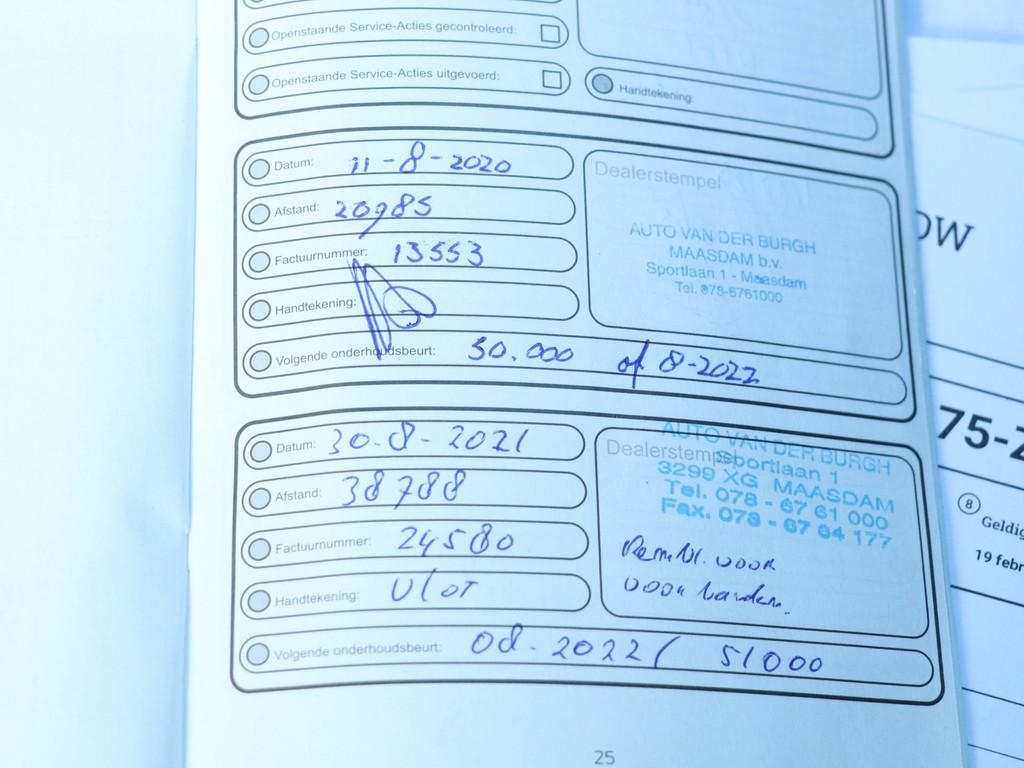 Openstaande Service-Acties gecontroleerd:
Openstaande Service-Acties uitgevoerd:
Handtekening:
Datum: 11-8-2020
Afstand: 20985
Factuurnummer: 13553
Handtekening:
Volgende onderhoudsbeurt: 50.000 of 8-2022
Dealerstempel
AUTO VAN DER BURGH
MAASDAM b.v.
Sportlaan 1 - Maasdam
Tel. 078-6761000
Datum: 30-8-2021
Afstand: 38788
Factuurnummer: 24580
Handtekening: Vlot
Volgende onderhoudsbeurt: 08-2022/ 51000
Dealerstempel
AUTO VAN DER BURGH
Sportlaan 1
3299 XG MAASDAM
Tel. 078 - 67 61 000
Fax. 078 - 67 64 177
voor
voor banden.
25
OW
75-
8
Geldig
19 febr